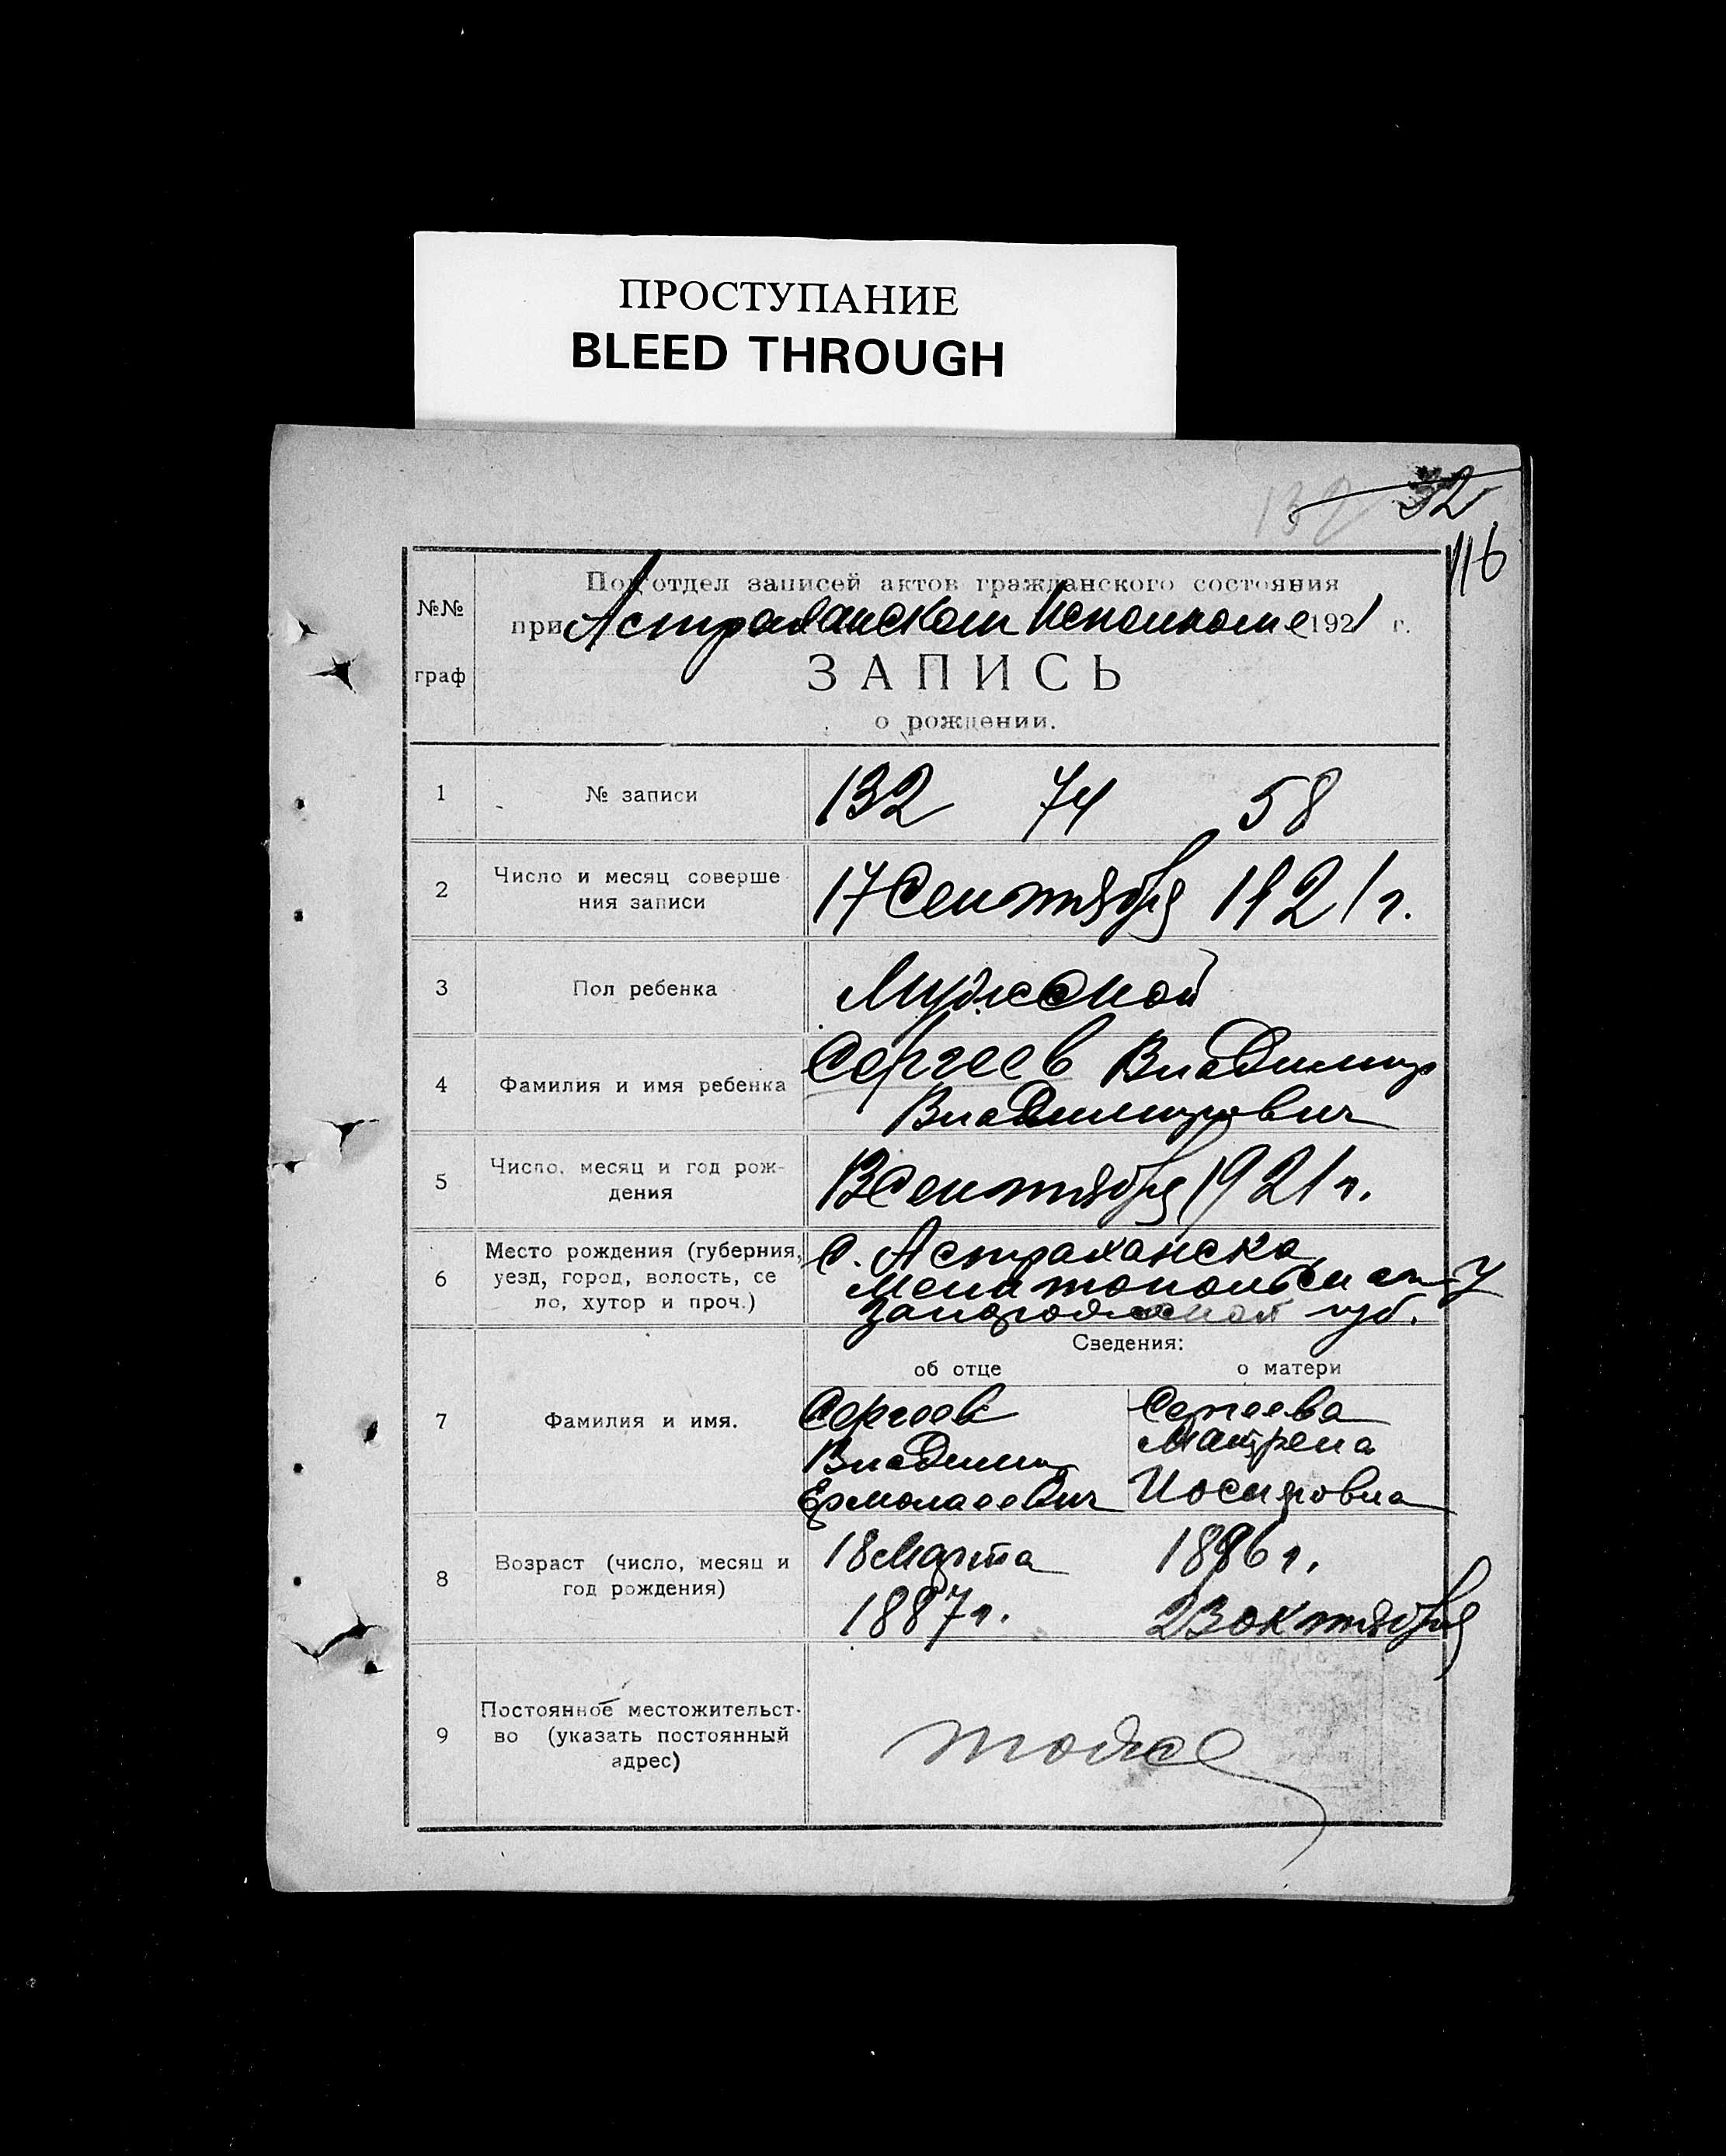 ПРОСТУПАНИЕ
BLEED THROUGH
132 32
116
№№
граф
Подотдел записей актов гражданского состояния
при Астраханском Исполкоме 1921 г.
ЗАПИСЬ
о рождении.
1 № записи 132 74 58
2 Число и месяц соверше-
ния записи 17 Сентября 1921 г.
3 Пол ребенка Мужской
4 Фамилия и имя ребенка Сергеев Владимир
Владимирович
5 Число, месяц и год рож-
дения 13 Сентября 1921 г.
6 Место рождения (губерния,
уезд, город, волость, се
ло, хутор и проч.)
с. Астраханска
Мелитопольск у
Запорожской губ.
Сведения:
об отце о матери
7 Фамилия и имя.
Сергеев Сергеева
Владимир Матрена
Ермолаевич Иосиповна
8 Возраст (число, месяц и
год рождения)
18 Марта 1896 г.
1887 г. 23 октября
9 Постоянное местожительст-
во (указать постоянный
адрес)
тоже